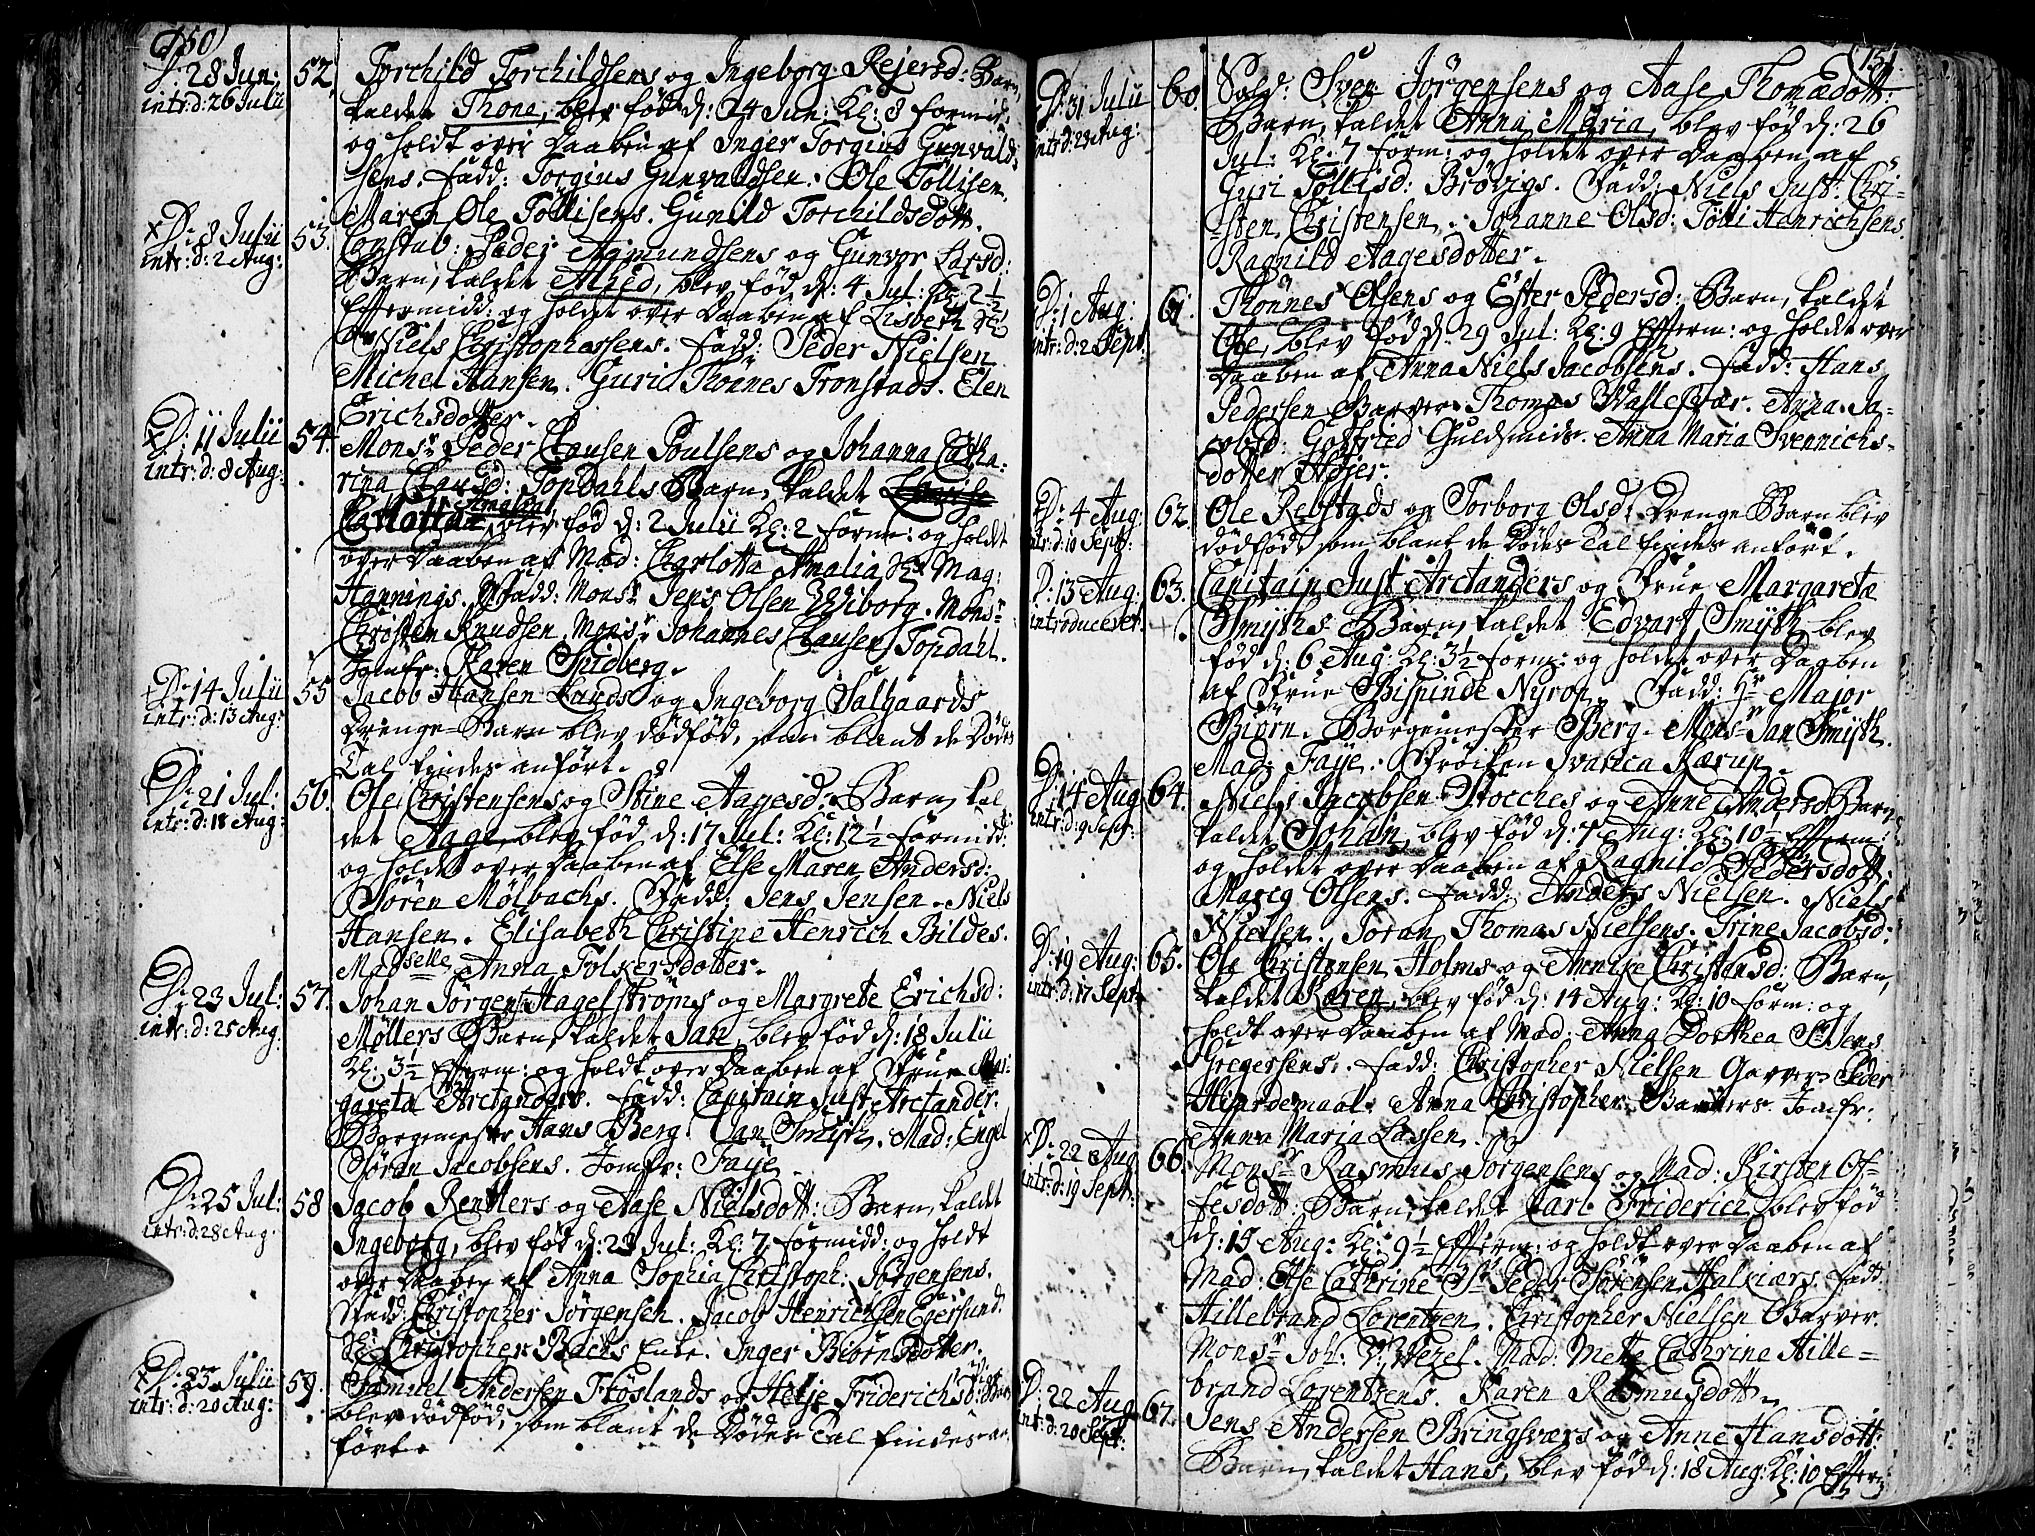 150)
D: 28 Jun:
intr: d: 26 Julii
52. Torchild Torchildsens og Ingeborg Rejersd: Barn,
kaldet Thone, blev född d: 24 Jun: Kl: 8 formid:
og holdt over Daaben af Inger Torgius Gunvald-
sens. Fadd: Torgius Gunvaldsen. Ole Töllisen.
Maren Ole Töllisens. Gunild Torchildsdott.
D: 8 Julii
intr: d: 2 Aug:
53. Constab: Peder Agmundsens og Gunvor Larsd:
Barn, kaldet blev föd d: 4 Jul: Kl: 2 1/2
Eftermidd: og holdet over Daaben af Lisbeth
Niels Christophersens. Fadd: Peder Nielsen
Michel Hansen. Guri Thönnes Tronstads. Elen
Erichsdotter.
D: 11 Julii
intr: d: 8 Aug:
54. Monsr Peder Clausen Poulsens og Johanna Catha-
rina Clausd: Topdahls Barn, kaldet
Carlotta Amalia, blev föd d: 2 Julii Kl: 2 form: og holdt
over Daaben af Mad: Charlotta Amalia Hr Mag:
Hannings. Fadd: Monsr Jens Olsen Wiborg. Monsr
Christen Knudsen. Monsr Johannes Clausen Topdahl.
Jomfr: Karen Spidberg.
D: 14 Julii
intr: d: 13 Aug:
55 Jacob Hansen Lunds og Ingeborg Salgaards
Drenge-Barn blev dödföd, som blant de Dödes
Tal findes anfört.
D: 21 Jul:
intr: d: 18 Aug:
56. Ole Christensens og Stine Aagesd: Barn, kal-
det Aage, blev föd d: 17 Jul: Kl: 12 1/2 formidd:
og holdt over Daaben af Else Maren Andersd:
Sören Mölbachs. Fadd: Jens Jensen. Niels
Hansen. Elisabeth Christine Henrich Bildes.
Madselle Anna Folkersdotter.
D: 23 Jul:
intr: d: 25 Aug
57. Johan Jörgen Hagelströms og Margrete Erichsd:
Möllers Barn, kaldet Jan, blev föd d: 18 Julii
Kl: 3 1/2 Efterm: og holdt over Daaben af Frue Mar-
gareta Arctanders. Fadd: Capitain Just Arctander.
Borgemester Hans Berg. Jan Smith. Mad: Engel
Sören Jacobsens. Jomfr: Faije.
D: 25 Jul:
intr: d: 28 Aug.
58 Jacob Rentlers og Aase Nielsdott: Barn, kaldet
Ingeborg, blev föd d: 23 Jul: Kl: 7 formidd: og holdt
over Daaben af Anna Sophia Christoph: Jörgensens.
Fadd: Christopher Jörgensen. Jacob Henrichsen Egersund.
Christopher Bachs Enke. Inger Biörnsdotter.
D: 23 Julii
intr: d: 20 Aug:
59. Samuel Andersen Flöslands og Helje Friderichsd: Barn
blev dödföd, som blant de Dödes Tal findes an-
fört.
151
D: 31 Julii
intr: d: 28 Aug:
60. Sold: Sven Jörgensens og Aase Thomædott:
Barn, kaldet Anna Maria, blev föd d: 26
Jul: Kl: 7 form: og holdet over Daaben af
Guri Töllisd: Brovigs. Fadd: Niels Just: Chri-
sten Christensen. Johanne Olsd: Tölli Henrichsens.
Ragnild Aagesdotter.
D: 1 Aug:
intr: d: 2 Sept:
61. Thönnes Olsens og Ester Pedersd: Barn, kaldet
Ole, blev föd d: 29 Jul: Kl: 9 Efterm: og holdt over
Daaben af Anna Niels Jacobsens. Fadd: Hans
Pedersen Barver. Thomas Anna Ja-
cobsd: Gotfried Guldsmids. Anna Maria Svennichs-
dotter Höjer.
D: 4 Aug:
intr: d: 10 Sept:
62. Ole Rebstads og Torborg Olsd: Drenge Barn blev
dödfödt, som blant de Dödes Tal findes anfört.
D: 13 Aug:
introduceret
63. Capitain Just Arctanders og Frue Margareta
Smyths Barn, kaldet Edvart Smyth, blev
föd d: 6 Aug: Kl: 3 1/2 form: og holdet over Daaben
af Frue Bispinde Nyrop. Fadd: Hr Major
Biörn. Borgemester Berg. Monsr Jan Smith.
Mad: Faije. Fröiken Ivarica Kærup.
D: 14 Aug
intr: d: 9 Sep:
64. Niels Jacobsen Stocches og Anne Andersd: Barn,
kaldet Johan, blev föd d: 7 Aug: Kl: 10 1/2 Efterm:
og holdet over Daaben af Ragnild Pedersdott:
Olsens. Fadd: Anders Nielsen. Niels
Nielsen. Joran Thomas Nielsens. Trine Jacobsd:
D: 19 Aug:
intr: d: 17 Sept:
65. Ole Christensen Holms og Annike Christensd: Barn,
kaldet Karen, blev föd d: 14 Aug: Kl: 10 form: og
holdt over Daaben af Mad: Anna Dorthea Sr Jens
Gregersens. Fadd: Christopher Nielsen Garver. Peder
Hiardemaal. Anna Christopher Barvers. Jomfr:
Anna Maria Lassen.
D: 22 Aug
intr: d: 19 Sept:
66. Monsr Rasmus Jörgensens og Mad: Kirsten Of-
fesdott: Barn, kaldet Carl Friderich, blev föd
d: 15 Aug: Kl: 9 1/2 Efterm: og holdt over Daaben af
Mad: Else Cathrine Sr Peder Sörensen Halkiærs. Fadd:
Hillebrand Lorentzen. Christopher Nielsen Barver.
Monsr Joh: V: Wezel. Mad: Mette Cathrine Hille-
brand Lorentzens. Karen Rasmusdott.
D: 22 Aug
intr: d: 20 Sept:
67. Jens Andersen Bringsværs og Anne Hansdott:
Barn, kaldet Hans, blev föd d: 18 Aug: Kl: 10 Efterm